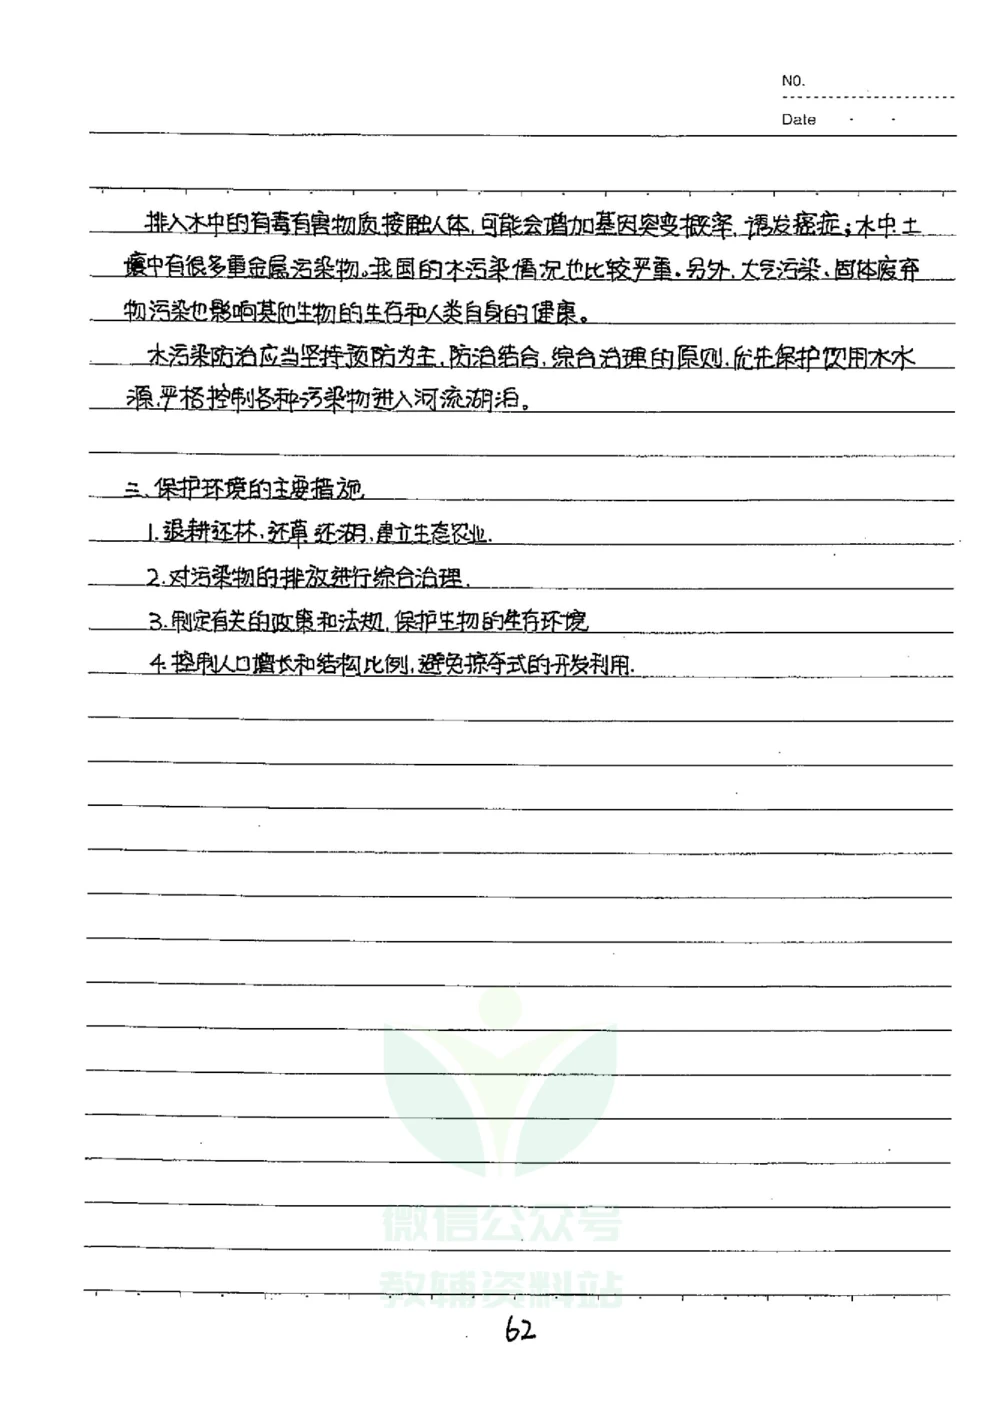 NO.
Date
排入水中的有毒有害物质接触人体,可能会增加基因突变概率,诱发癌症;水中土
壤中有很多重金属污染物。我国的水污染情况也比较严重.另外,大气污染、固体废弃
物污染也影响其他生物的生存和人类自身的健康。
水污染防治应当坚持预防为主,防治结合,综合治理的原则,优先保护饮用水水
源,严格控制各种污染物进入河流湖泊。
三、保护环境的主要措施
1.退耕还林,还草还湖,建立生态农业.
2.对污染物的排放进行综合治理.
3.制定有关的政策和法规,保护生物的生存环境
4.控制人口增长和结构比例,避免掠夺式的开发利用.
微信公众号
教辅资料站
62